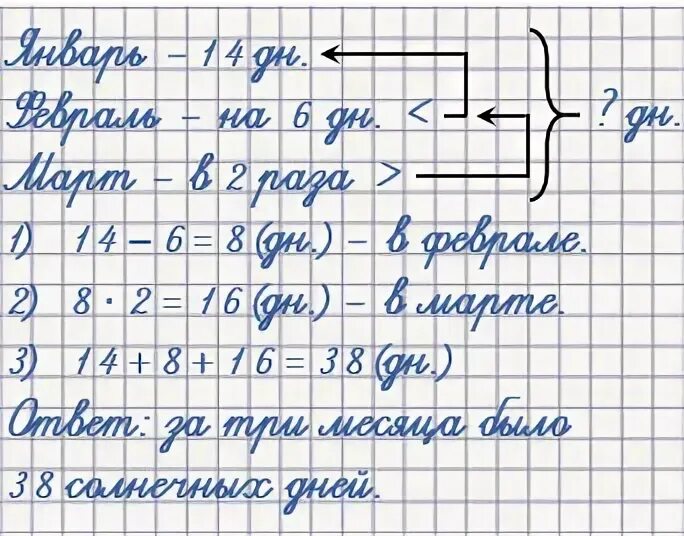 Январь – 14 дн.
Февраль – на 6 дн. < ? дн.
Март – в 2 раза >
1) 14 – 6 = 8 (дн.) – в феврале.
2) 8 · 2 = 16 (дн.) – в марте.
3) 14 + 8 + 16 = 38 (дн.)
Ответ: за три месяца было
38 солнечных дней.